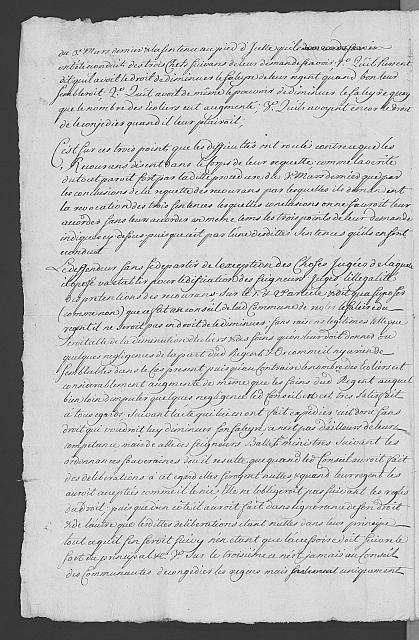 du 3e Mars dernier & la sentence au pied d'icelle qu'ils
ont été conduit des trois Chefs suivans de leur demande scavoir 1o Qu'ils fussent
dit qu'il avoit le droit de diminuer le salaire de leur regent quand bon leur
sembleroit 2o Qu'il avoit de même le pouvoir de diminuer le salaire de quoy
que le nombre des Ecoliers eut augmenté, 3o Qu'ils avoyent encor le droit
de le congedier quand il leur plairoit.
C'est sur ces trois point que les difficultés ont roulé contre que les
Recourans disent dans le corps de leur requette comme la verité
du tout paroit tant par la ditte procedure du 3e Mars dernier que par
les conclusions de la requette des recourans par lesquelles ils demandent
la revocation des trois sentences lesquelles conclusions on ne sauroit leur
accorder sans leur accorder en même tems les trois points de leur demande
indiqués cy dessus puis que c'est par l'une des dittes Sentences qu'ils en sont
econduit
Le deffendeur sans se departir de l'exception des Choses Jugées de laquelle
il opose va etablir pour l'edification des seigneurs Juges l'illegalité
des pretentions des recourans Sur le 1er article & dit que suposer
(comme non) que ce fut au conseil de lad Commune de regler le salaire du
regent il ne seroit pas en droit de le diminuer sans raisons legitimes telle que
seroit celle de la diminution d'Ecoliers & des soins qu'on leur doit donner ou
quelques negligences de la part dud Regent & Or comme il n'y a rien de
semblable dans le Cas present puis qu'au Contraire le nombre des Ecoliers est
considerablement augmenté de même que les soins dud Regent auquel
bien loin d'imputer quelques negligence led Conseil est tres satisfait
à tous egards Suivant l'acte qu'ils luy en ont fait expedier c'est donc sans
droit que voudroit luy diminuer son salaire ce n'est pas d'ailleurs de leur
competance mais de celle des seigneurs Baillifs & ministres Suivant les
ordonnances souveraines d'ou il resulte que quand led Conseil auroit fait
des deliberations à cet egard elles seroyent nulles & quand leur regent les
auroit acceptées comme il le nie Elle ne l'obligeroit pas suivant les regles
du droit puis que d'un coté il auroit fait dans l'ignorance de son droit
& de l'autre que lesdittes deliberations etant nulles dans leur principe
tout ce qui s'en seroit suivy n'en etant que l'accessoire doit suivre le
sort du principal &c. 3o Sur le troisième ce n'est jamais au Conseil
des Communautés de congedier les regens mais seulement uniquement